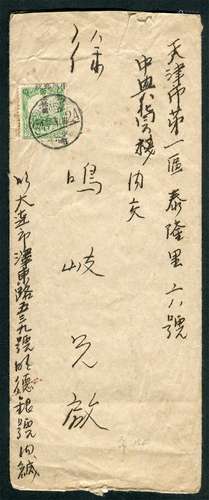 天津市第一區泰隆里六號
中興公樓內交
徐鳴岐兄啟
大連市津東路五三九號明德銀號內緘